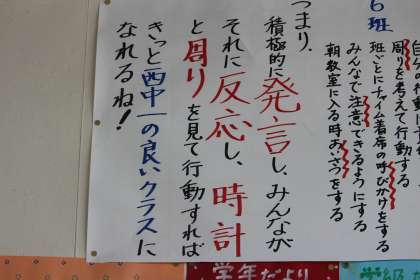 6班
周りを考えて行動する
班ごとにチャイム着席の呼びかけをする
みんなで注意できるようにする
朝教室に入る時あいさつをする
つまり、
積極的に発言し、みんなが
それに反応し、時計
と周りを見て行動すれば
きっと西中一の良いクラスに
なれるね!
学年だより